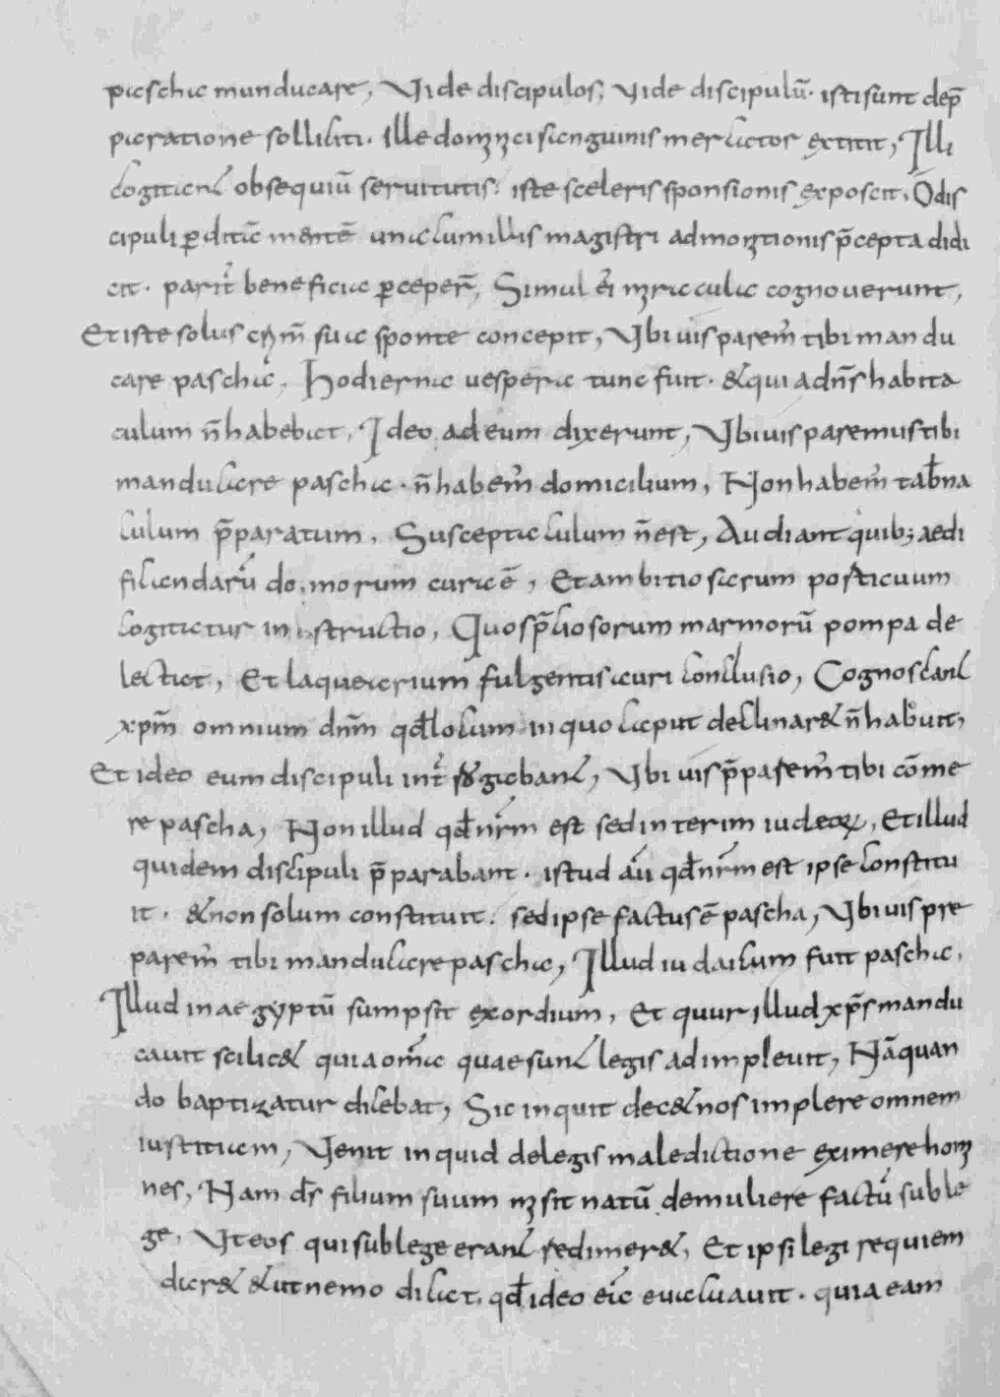 pascha manducare, Vide discipulos, vide discipulū· isti sunt dep̄
paratione solliciti· ille dominici sanguinis mercator extitit, Illi
cogitant obsequiū seruitutis· iste sceleris sponsionis exposcit, O dis
cipuli ꝑditiā mentē una cum illis magistri admonitionis p̄cepta didi
cit· parit̄ beneficia ꝑceper̄, Simul ei miracula cognouerunt,
Et iste solus crim̄ sua sponte concepit, Vbi uis parem̄ tibi mandu
care pascha, Hodierna uespera tunc fuit· & quia dn̄s habita
culum n̄ habebat, Ideo ad eum dixerunt, Vbi uis paremus tibi
manducare pascha· n̄ habem̄ domicilium, Non habem̄ tab̄na
culum p̄paratum, Susceptaculum n̄ est, Audiant quib; aedi
ficandarū domorum cura ē, Et ambitiosarum porticuum
cogitatur instructio, Quos p̄ciosorum marmorū pompa de
lectat, Et laquearium fulgentis auri conclusio, Cognoscant
xp̄m omnium dn̄m qd̄ locum in quo caput declinar& n̄ habuit,
Et ideo eum discipuli int̄rogabant, Vbi uis p̄parem̄ tibi cōme
re pascha, Non illud qd̄ nr̄m est sed interim iudeoꝝ, Et illud
quidem discipuli p̄parabant· istud aū qd̄ nr̄m est ipse constitu
it· & non solum constituit· sed ipse factus ē pascha, Vbi uis pre
parem̄ tibi manducare pascha, Illud iudaicum fuit pascha,
Illud in aegyptū sumpsit exordium, Et quur illud xp̄s mandu
cauit scilic& quia om̄a quae sunt legis adimpleuit, Nā quan
do baptizatur dicebat, Sic inquit dec& nos implere omnem
iustitiam, Venit inquid de legis maledictione eximere homi
nes, Nam d̄s filium suum misit natū de muliere factū sub le
ge, Vt eos qui sub lege erant redimer&, Et ipsi legi requiem
dar& & ut nemo dicat, qd̄ ideo eā euacuauit· quia eam